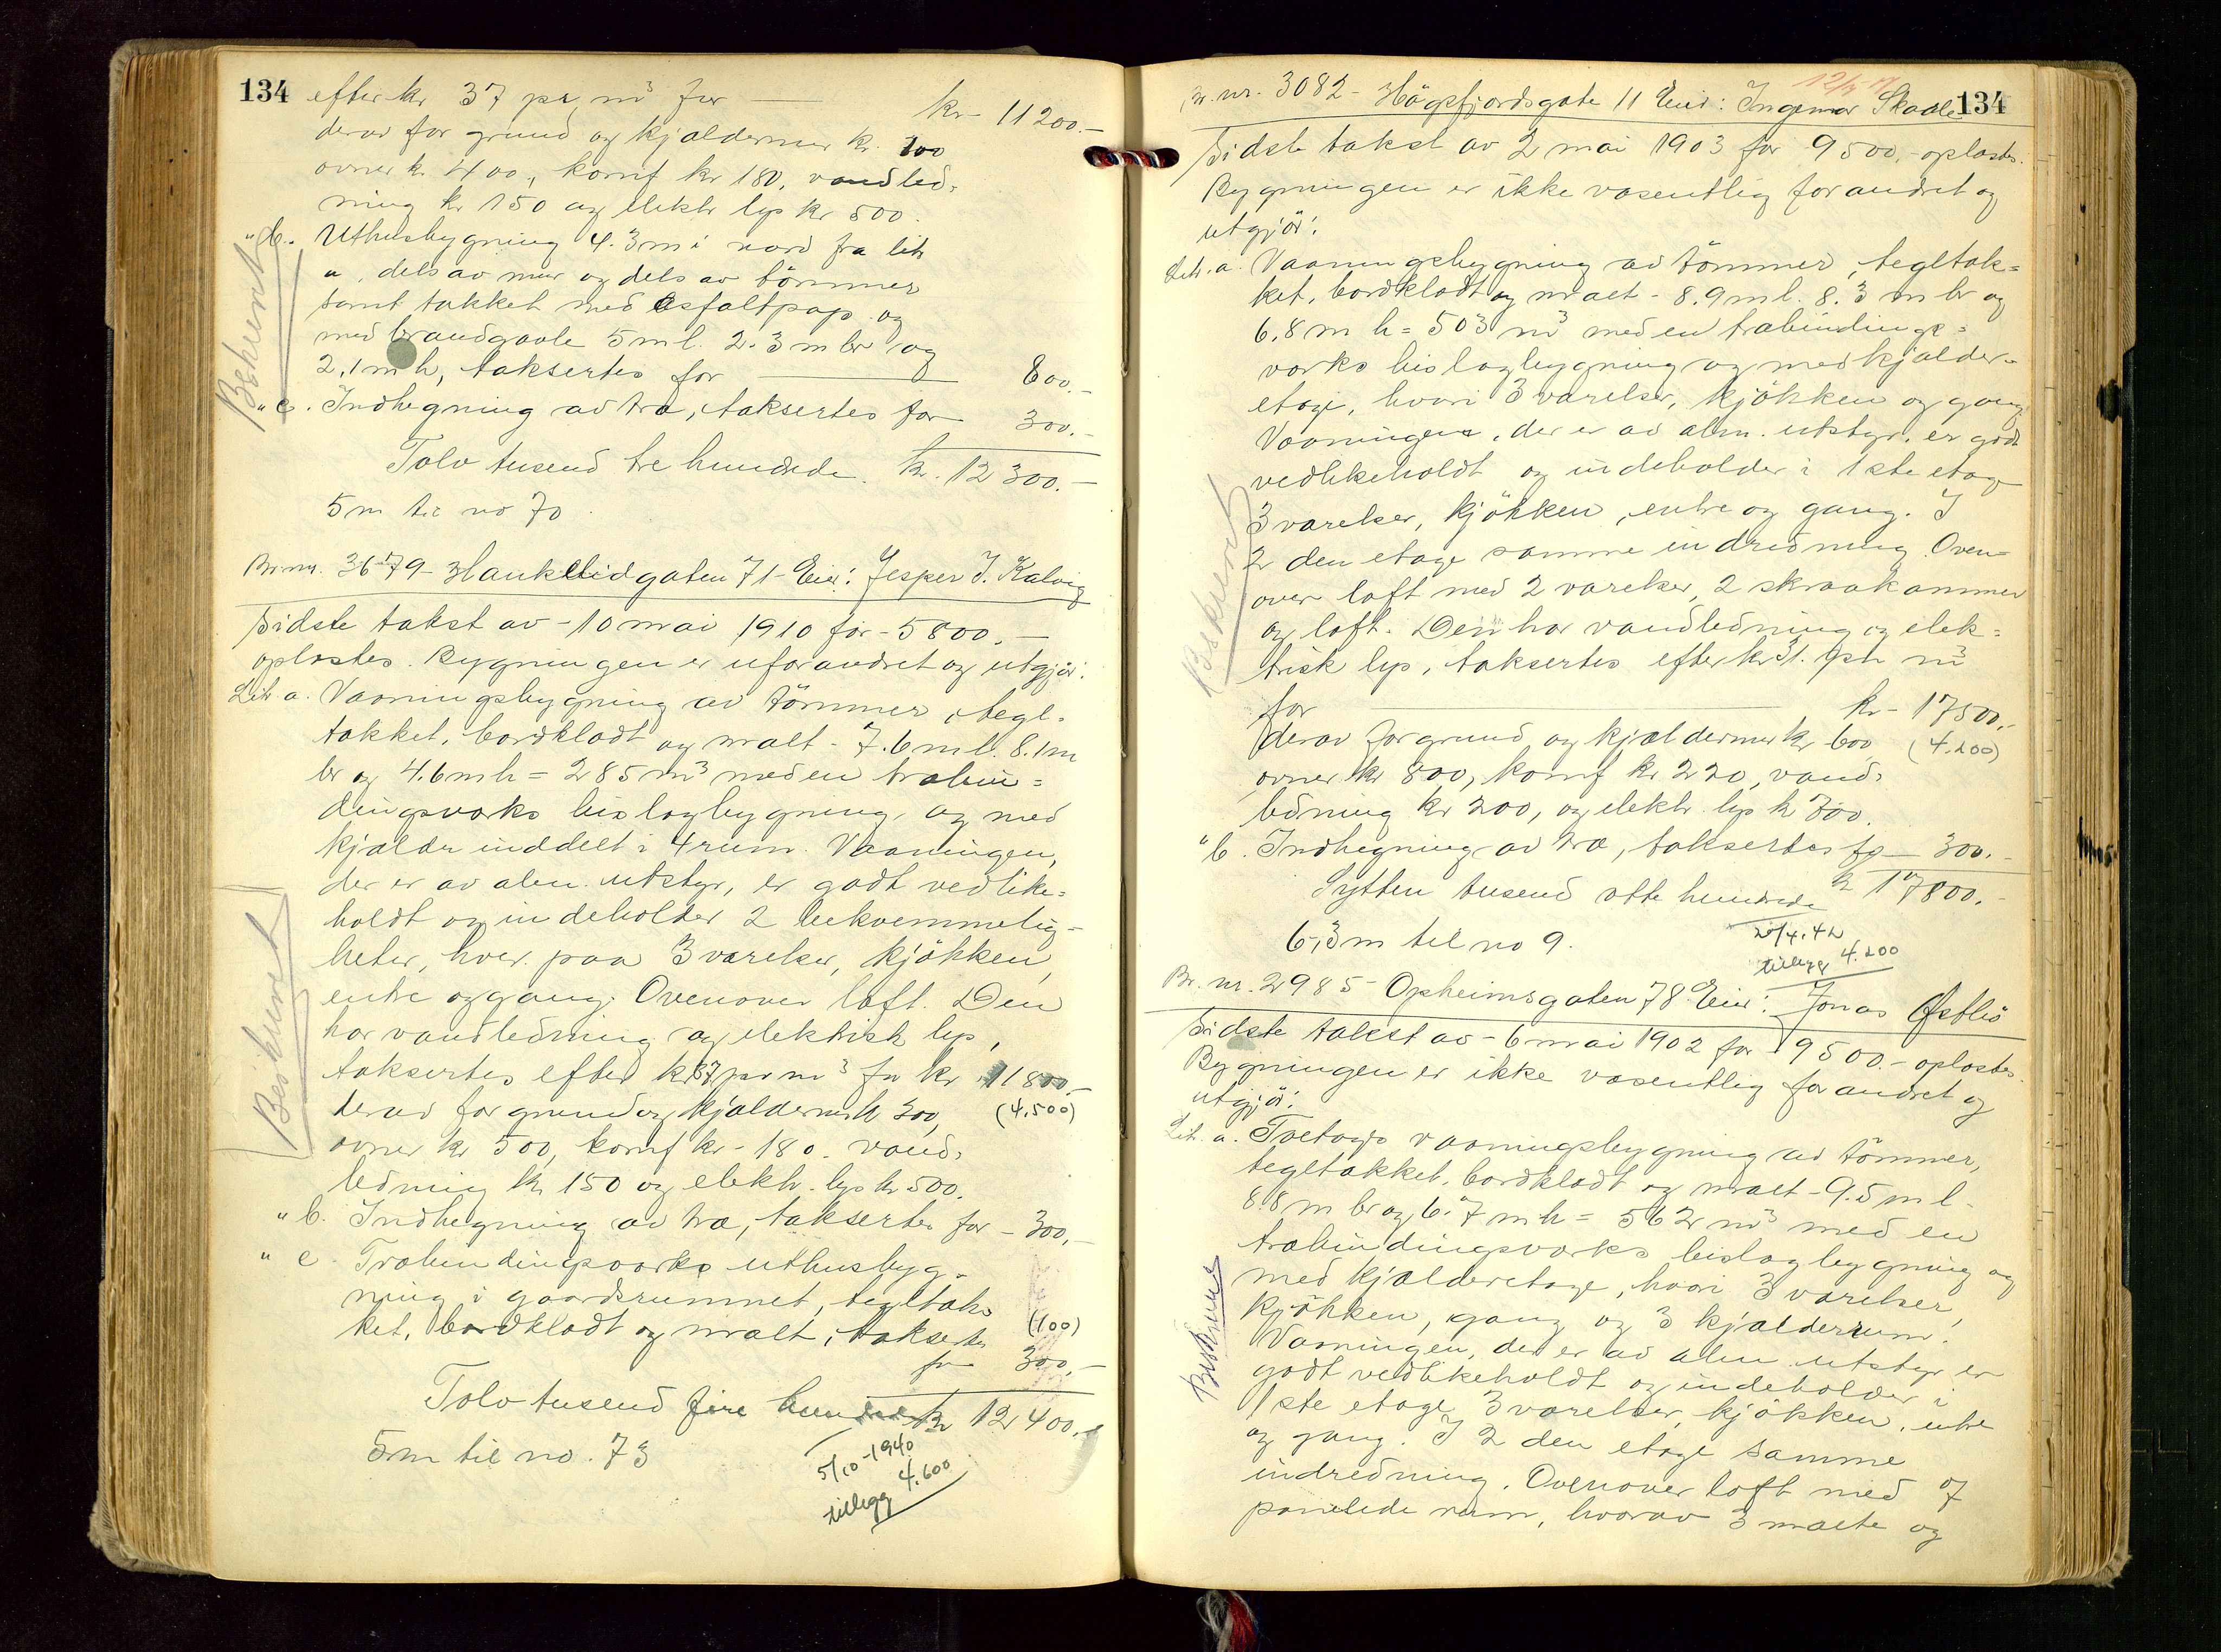 134
efter kr 37 pr m³ for — kr 11200.-
derav for grund og kjældermur kr. 300
ovner kr 400, komf kr 180, vandled-
ning kr 150 og elektr lys kr 500.
" b. Uthusbygning 4.3 m i nord fra litr
a, dels av mur og dels av tömmer
samt tækket med asfaltpap og
med brandgavle 5 m l. 2.3 m br og
2,1 m h, taksertes for — 800.-
" c. Indhegning av træ, taksertes for — 300.-
Tolv tusend tre hundrede. kr. 12300.-
5 m til no 70.
Beskrevet
Br. nr. 3679 - Haukelidgaten 71 - Eier: Jesper J. Kalvig
Sidste takst av - 10 mai 1910 for - 5800.-
oplæstes. Bygningen er uforandret og utgjör:
Litr a. Vaaningsbygning av tömmer, tegl-
tækket, bordklædt og malt - 7.6 m l. 8.1 m
br og 4.6 m h = 285 m³ med en træbin=
dingsværks bislagbygning, og med
kjælder inddelt i 4 rum. Vaaningen,
der er av alm. utstyr, er godt vedlike=
holdt og indeholder 2 bekvemmelig=
heter, hver paa 3 værelser, kjökken,
entre og gang. Ovenover loft. Den
har vandledning og elektrisk lys,
taksertes efter kr 37 pr m³ for kr 11800.-
derav for grund og kjældermur kr 300, (4.500)
ovner kr 500, komf kr - 180. vand-
ledning kr 150 og elektr. lys kr 500.
" b. Indhegning av træ, taksertes for - 300,-
" c. Træbindingsværks uthusbyg-
ning i gaardsrummet, tegltæk-
ket, bordklædt og malt, taksertes (100)
for 300,-
Tolv tusend fire hundrede kr 12400.-
5 m til no. 73
5/10-1940
tillegg 4.600
Beskrevet
134
Br. nr. 3082 - Högsfjordsgate 11 Eier: Ingemar Skadle
Sidste takst av 2 mai 1903 for 9500.- oplæstes.
Bygningen er ikke væsentlig forandret og
utgjör:
Litr. a. Vaaningsbygning av tömmer, tegltæk=
ket, bordklædt og malt - 8.9 m l. 8.3 m br og
6,8 m h = 503 m³ med en træbindings=
værks bislagbygning og med kjælder-
etage, hvori 3 værelser, kjökken og gang.
Vaaningen, der er av alm. utstyr, er godt
vedlikeholdt og indeholder i 1ste etage
3 værelser, kjökken, entre og gang. I
2 den etage samme indredning. Oven=
over loft med 2 værelser, 2 skraakammer
og loft. Den har vandledning og elek=
trisk lys, taksertes efter kr 31. pr m³
for — kr - 17500.-
derav for grund og kjældermur kr 600 (4.200)
ovner kr 800, komf kr 220, vand-
ledning kr 200, og elektr. lys kr 700.
" b. Indhegning av træ, taksertes for — 300.-
Sytten tusend otte hundrede kr 17800.-
6,3 m til no 9.
20/4.42
tillegg 4.200
Beskrevet
Br. nr. 2985 - Opheimsgaten 78. Eier: Jonas Østbö
Sidste takst av - 6 mai 1902 for 19500.- oplæstes.
Bygningen er ikke væsentlig forandret og
utgjör:
Litr. a. Toetages vaaningsbygning av tömmer,
tegltækket, bordklædt og malt - 9.5 m l.
8.8 m br og 6.7 m h = 562 m³ med en
træbindingsværks bislagbygning og
med kjælderetage, hvori 3 værelser,
kjökken, gang og 3 kjælderrum.
Vaaningen, der er av alm utstyr er
godt vedlikeholdt og indeholder i
1ste etage 3 værelser, kjökken, entre
og gang. I 2 den etage samme
indredning. Ovenover loft med 7
panelede rum, hvorav 3 malte og
Beskrevet